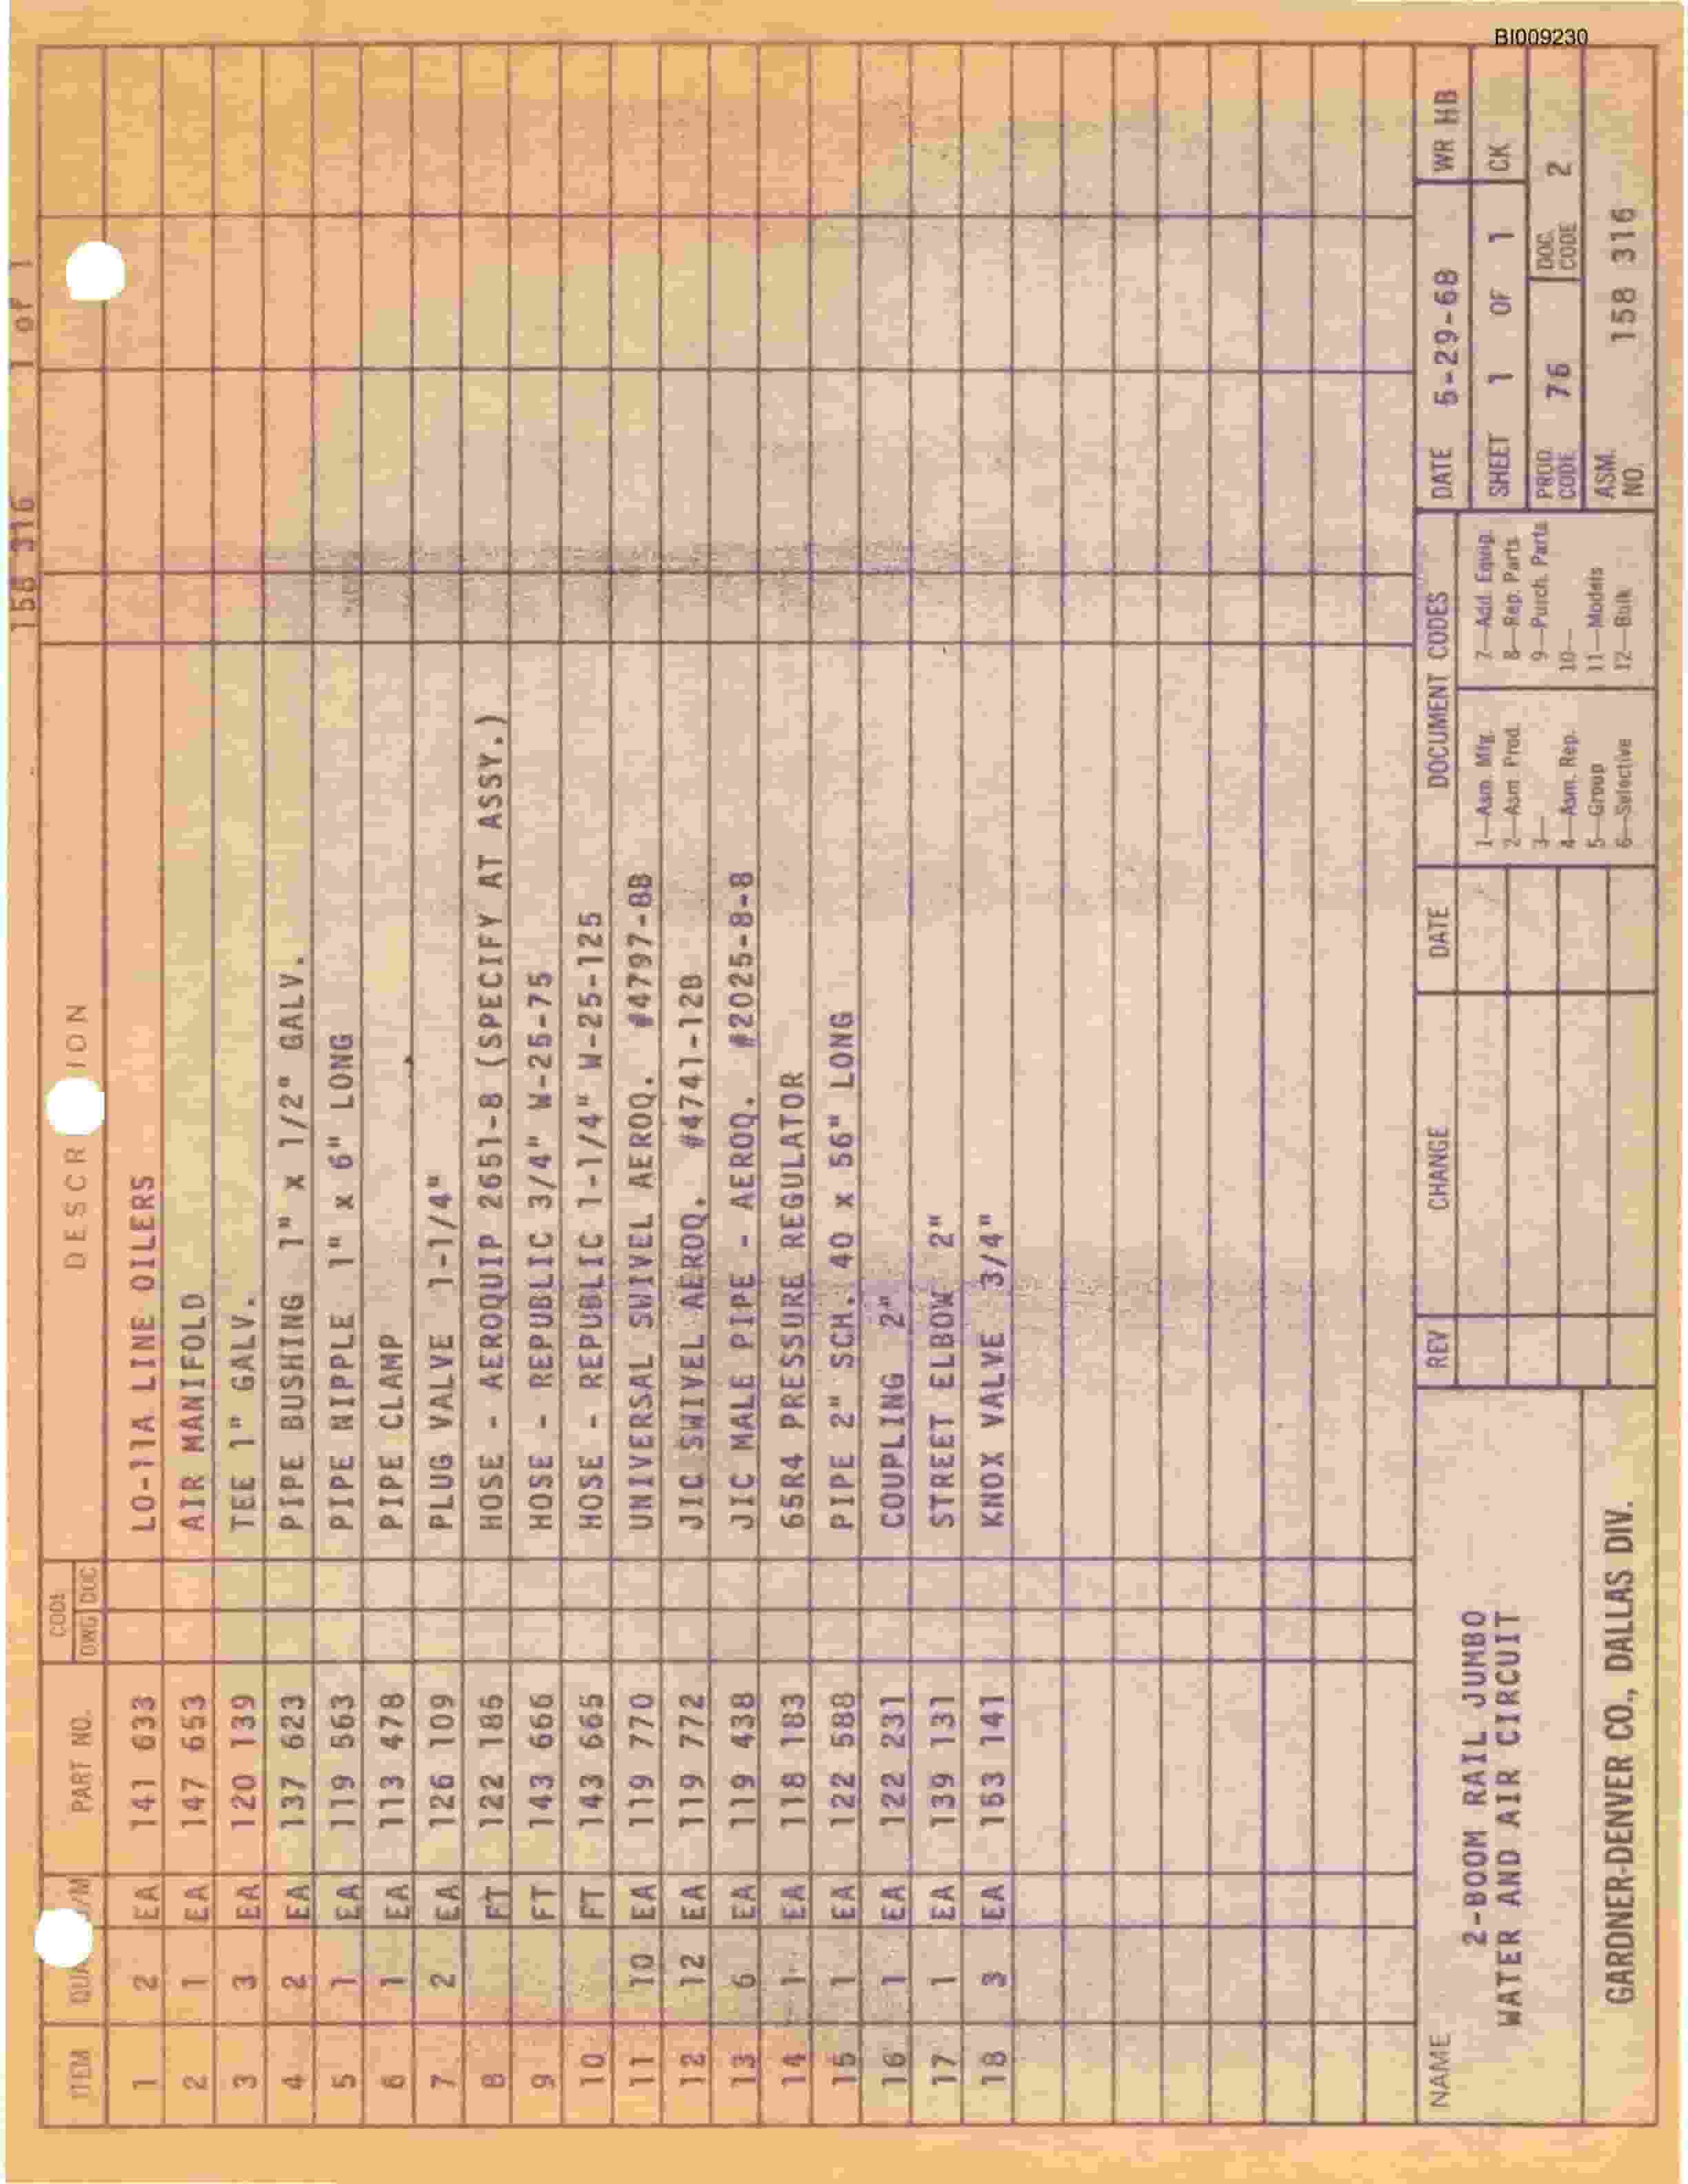 BI009230
158 316 1 of 1
ITEM QUA /M PART NO. CODE DWG DOC DESCR ION
1 2 EA 141 633 LO-11A LINE OILERS
2 1 EA 147 653 AIR MANIFOLD
3 3 EA 120 139 TEE 1" GALV.
4 2 EA 137 623 PIPE BUSHING 1" x 1/2" GALV.
5 1 EA 119 563 PIPE NIPPLE 1" x 6" LONG
6 1 EA 113 478 PIPE CLAMP
7 2 EA 126 109 PLUG VALVE 1-1/4"
8 FT 122 185 HOSE - AEROQUIP 2651-8 (SPECIFY AT ASSY.)
9 FT 143 666 HOSE - REPUBLIC 3/4" W-25-75
10 FT 143 665 HOSE - REPUBLIC 1-1/4" W-25-125
11 10 EA 119 770 UNIVERSAL SWIVEL AEROQ. #4797-8B
12 12 EA 119 772 JIC SWIVEL AEROQ. #4741-12B
13 6 EA 119 438 JIC MALE PIPE - AEROQ. #2025-8-8
14 1 EA 118 183 65R4 PRESSURE REGULATOR
15 1 EA 122 588 PIPE 2" SCH. 40 x 56" LONG
16 1 EA 122 231 COUPLING 2"
17 1 EA 139 131 STREET ELBOW 2"
18 3 EA 153 141 KNOX VALVE 3/4"
NAME
2-BOOM RAIL JUMBO
WATER AND AIR CIRCUIT
GARDNER-DENVER CO., DALLAS DIV.
REV CHANGE DATE
DOCUMENT CODES
1—Asm. Mfg.
2—Asm. Prod.
3—
4—Asm. Rep.
5—Group
6—Selective
7—Add. Equip.
8—Rep. Parts
9—Purch. Parts
10—
11—Models
12—Bulk
DATE 5-29-68 WR HB
SHEET 1 OF 1 CK
PROD. CODE 76 DOC. CODE 2
ASM. NO. 158 316